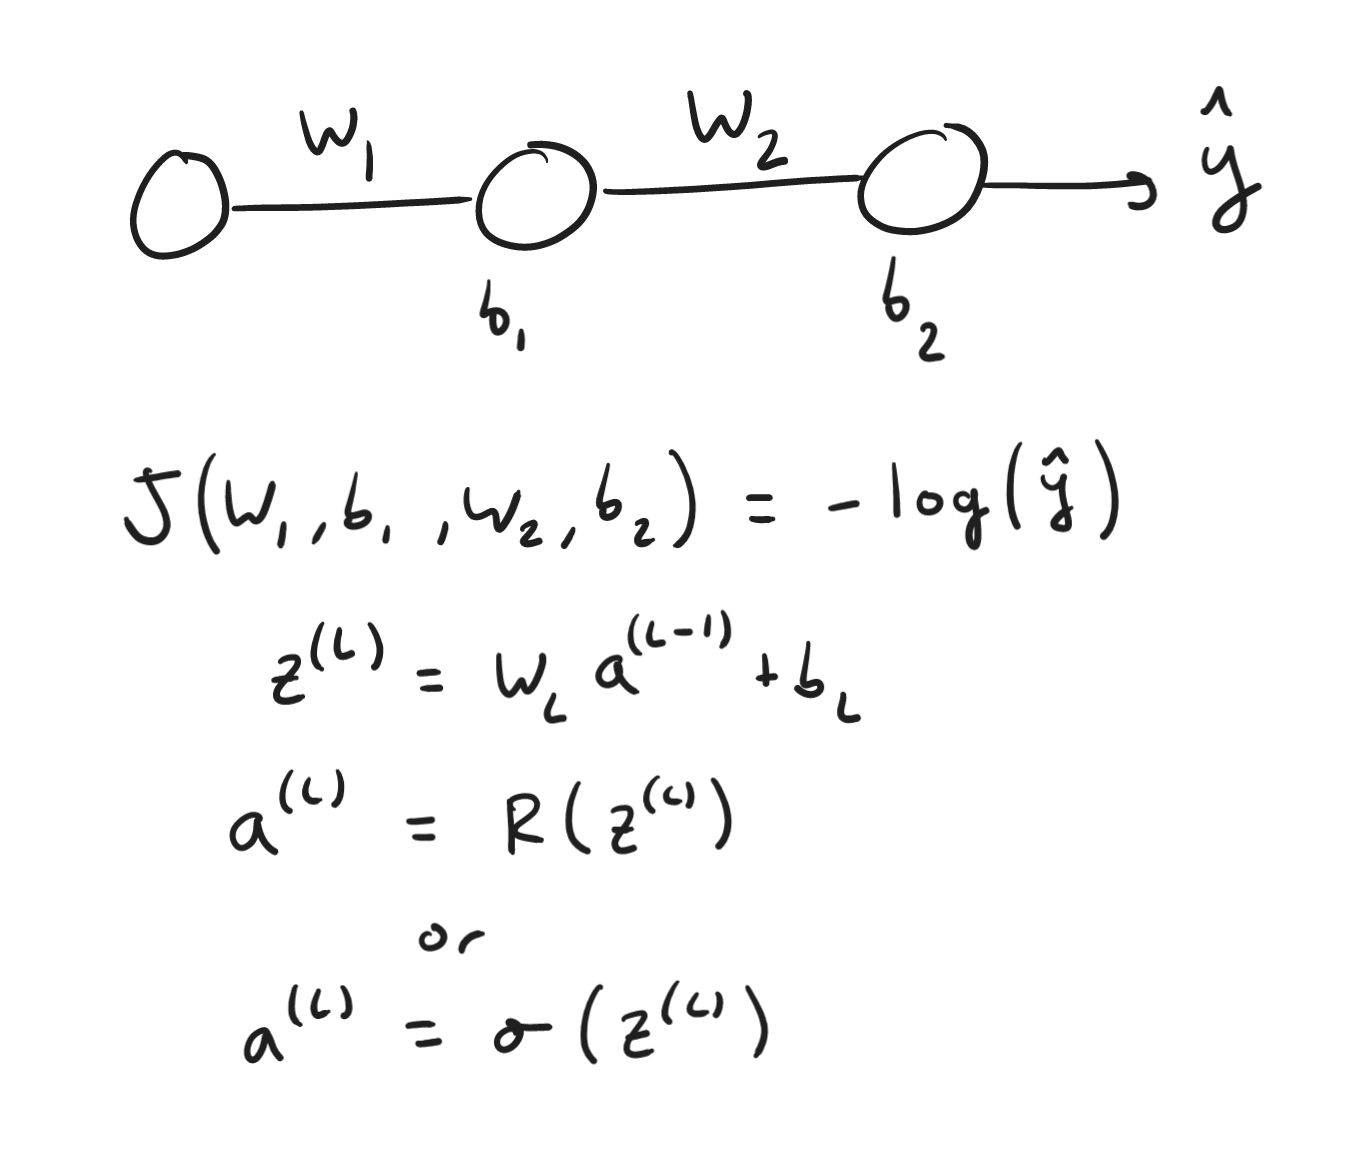 W₁ W₂ ŷ
b₁ b₂
J(W₁, b₁, W₂, b₂) = -log(ŷ)
z⁽ᴸ⁾ = W_L a⁽ᴸ⁻¹⁾ + b_L
a⁽ᴸ⁾ = R(z⁽ᴸ⁾)
or
a⁽ᴸ⁾ = σ(z⁽ᴸ⁾)